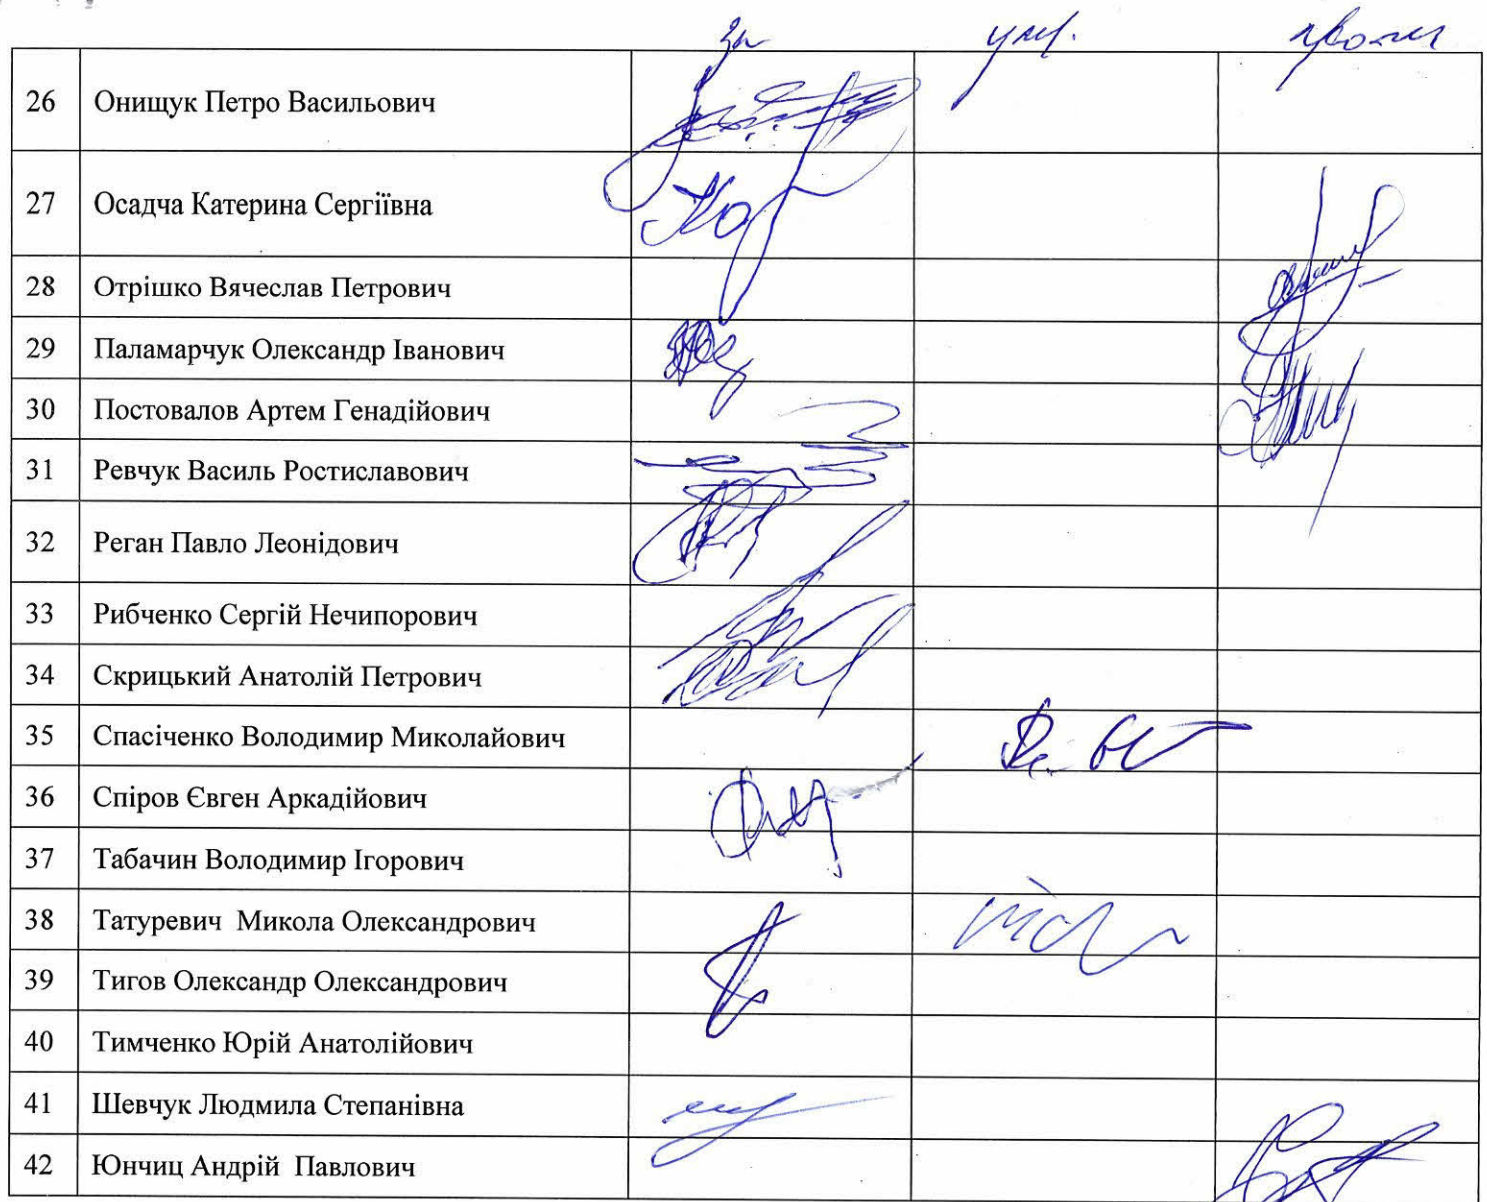 за утр. проти
26 Онищук Петро Васильович
27 Осадча Катерина Сергіївна
28 Отрішко Вячеслав Петрович
29 Паламарчук Олександр Іванович
30 Постовалов Артем Генадійович
31 Ревчук Василь Ростиславович
32 Реган Павло Леонідович
33 Рибченко Сергій Нечипорович
34 Скрицький Анатолій Петрович
35 Спасіченко Володимир Миколайович
36 Спіров Євген Аркадійович
37 Табачин Володимир Ігорович
38 Татуревич Микола Олександрович
39 Тигов Олександр Олександрович
40 Тимченко Юрій Анатолійович
41 Шевчук Людмила Степанівна
42 Юнчиц Андрій Павлович